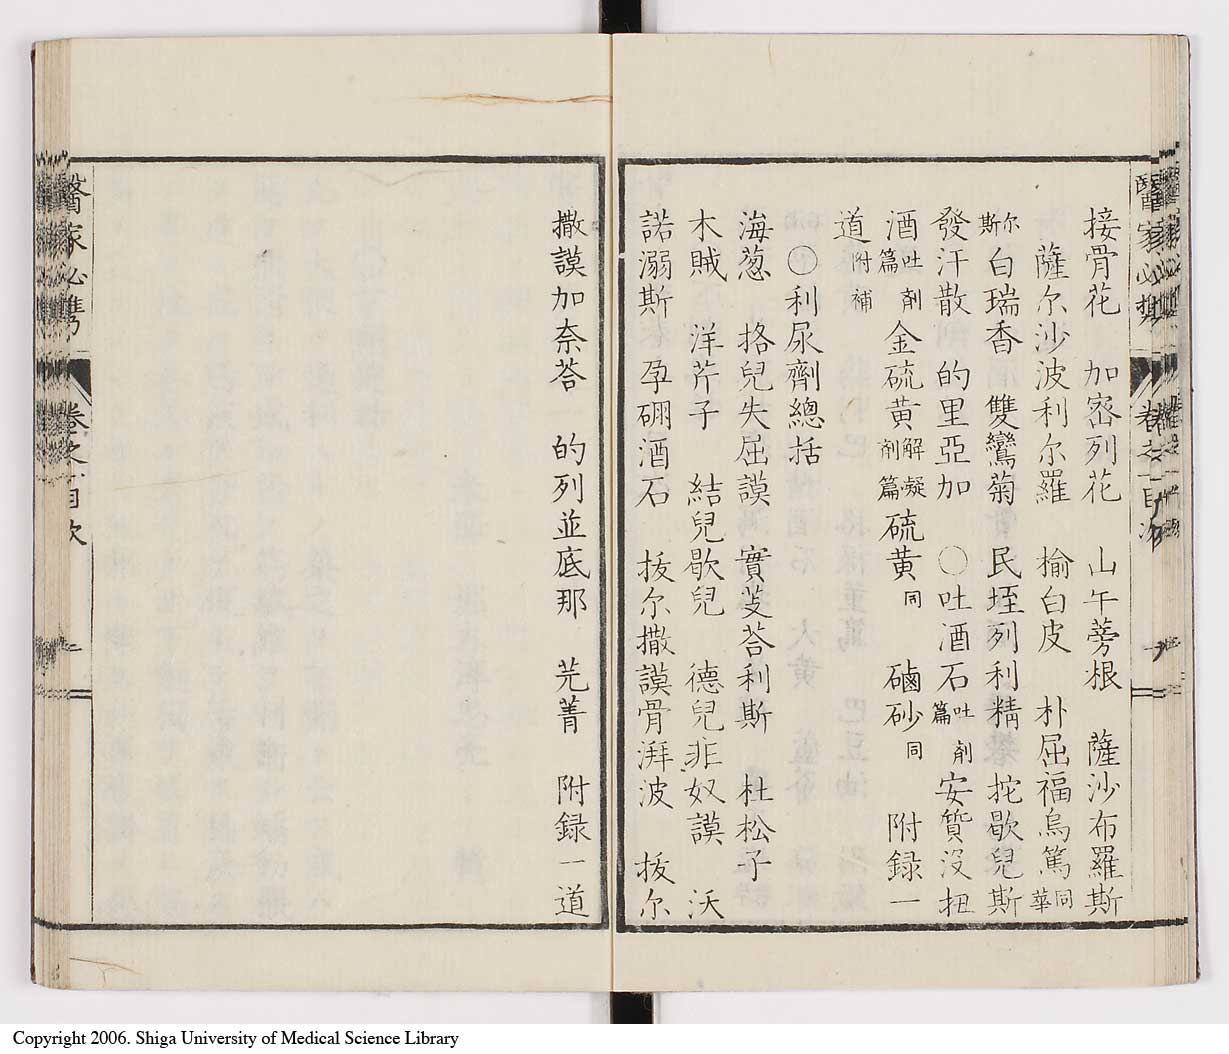 接骨花　加密列花　山午蒡根　薩沙布羅斯
薩尓沙波利尓羅　榆白皮　朴屈福烏篤同華
尓斯白瑞香　雙鸞菊　民垤列利精　挓歇兒斯
發汗散　的里亞加　〇吐酒石吐剤篇安質没扭
酒吐剤篇金硫黄解凝剤篇硫黄同　磠砂同　附録一
道附補
〇利尿劑總括
海葱　挌兒失屈謨　實芰荅利斯　杜松子
木賊　洋芹子　結兒歇兒　德兒非奴謨　沃
諾溺斯　孕硼酒石　抜尓撒謨骨湃波　抜尓
撒謨加奈荅　的列並底那　芫菁　附録一道
醫家必携　卷之一目次
醫家必攜　卷之一目次　一
Copyright 2006. Shiga University of Medical Science Library